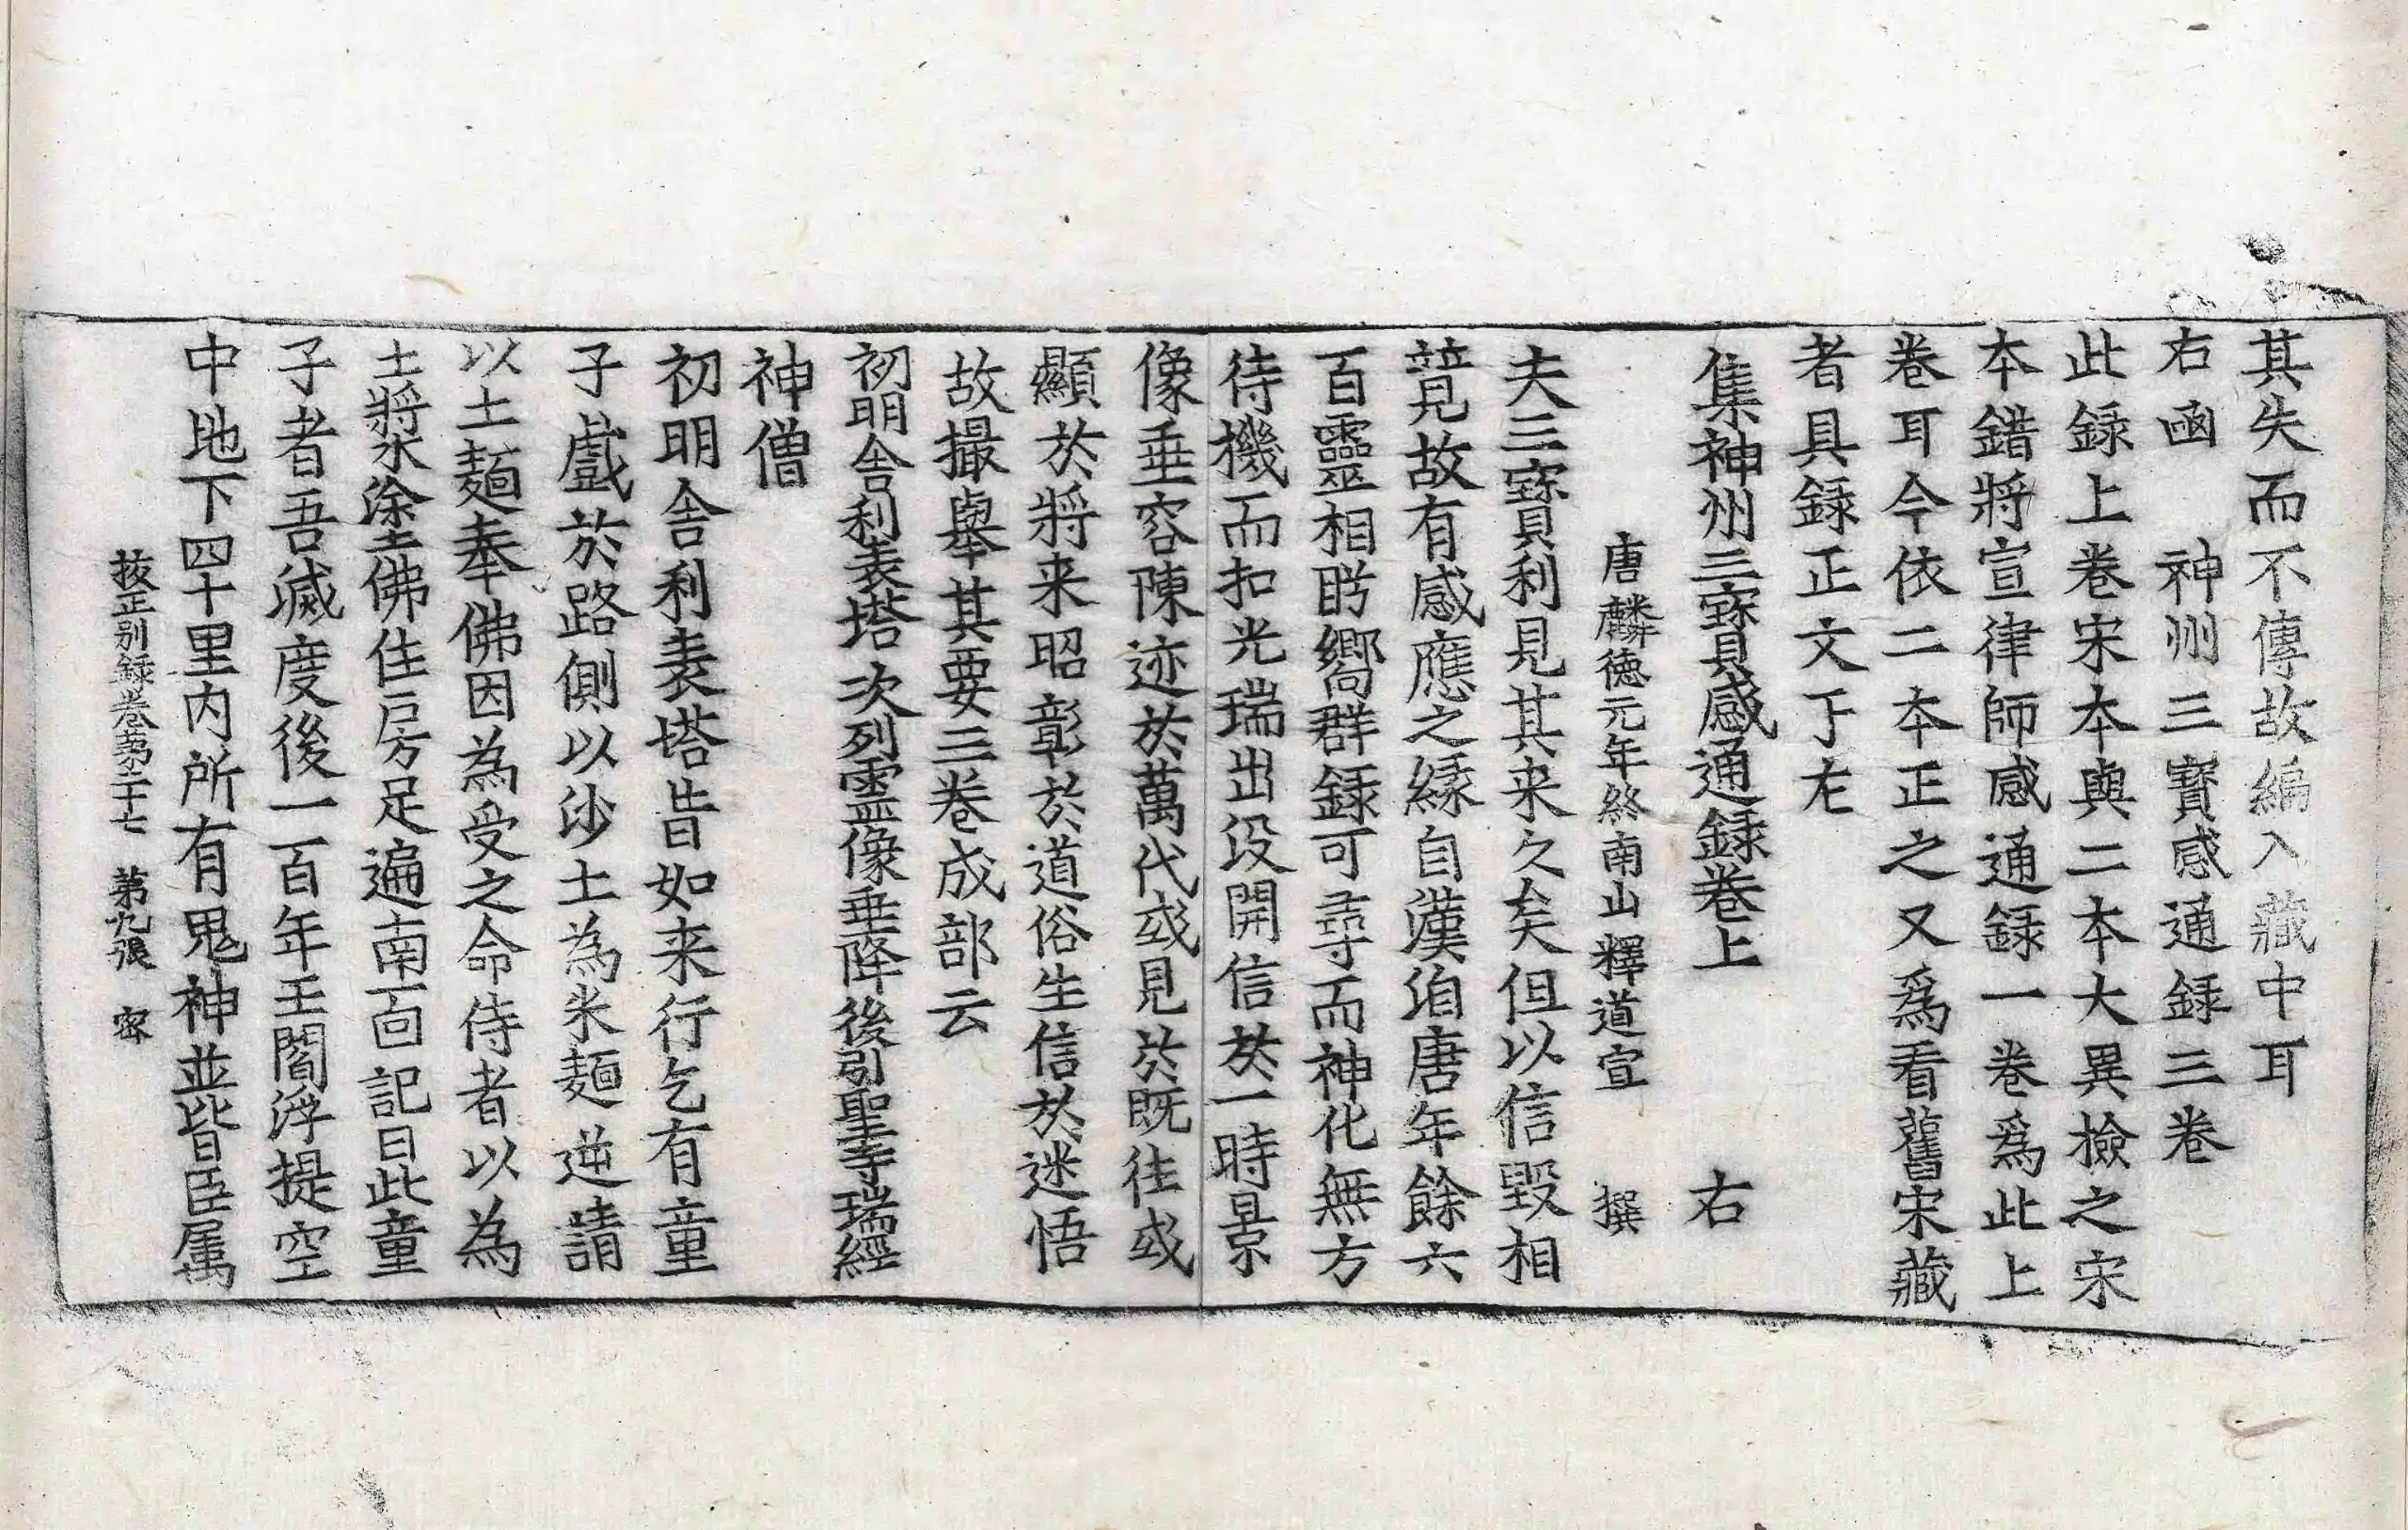 其失而不傳故編入藏中耳
右函　神州三寶感通録三卷
此録上卷宋本與二本大異撿之宋
本錯將宣律師感通録一卷爲此上
卷耳今依二本正之又爲看舊宋藏
者具録正文于左
集神州三寶感通録卷上　右
唐麟德元年終南山釋道宣　撰
夫三寶利見其来久矣但以信毀相
競故有感應之緣自漢洎唐年餘六
百靈相肹嚮群録可尋而神化無方
待機而扣光瑞出没開信於一時景
像垂容陳迹於萬代或見於既往或
顯於將来昭彰於道俗生信於迷悟
故撮舉其要三卷成部云
初明舍利表塔次列靈像垂降後引聖寺瑞經
神僧
初明舍利表塔昔如来行乞有童
子戲於路側以沙土為米麺逆請
以土麺奉佛因為受之命侍者以為
土將水塗佛住房足遍南面記曰此童
子者吾滅度後一百年王閻浮提空
中地下四十里内所有鬼神並皆臣属
挍正别録卷第二十七　第九張　密